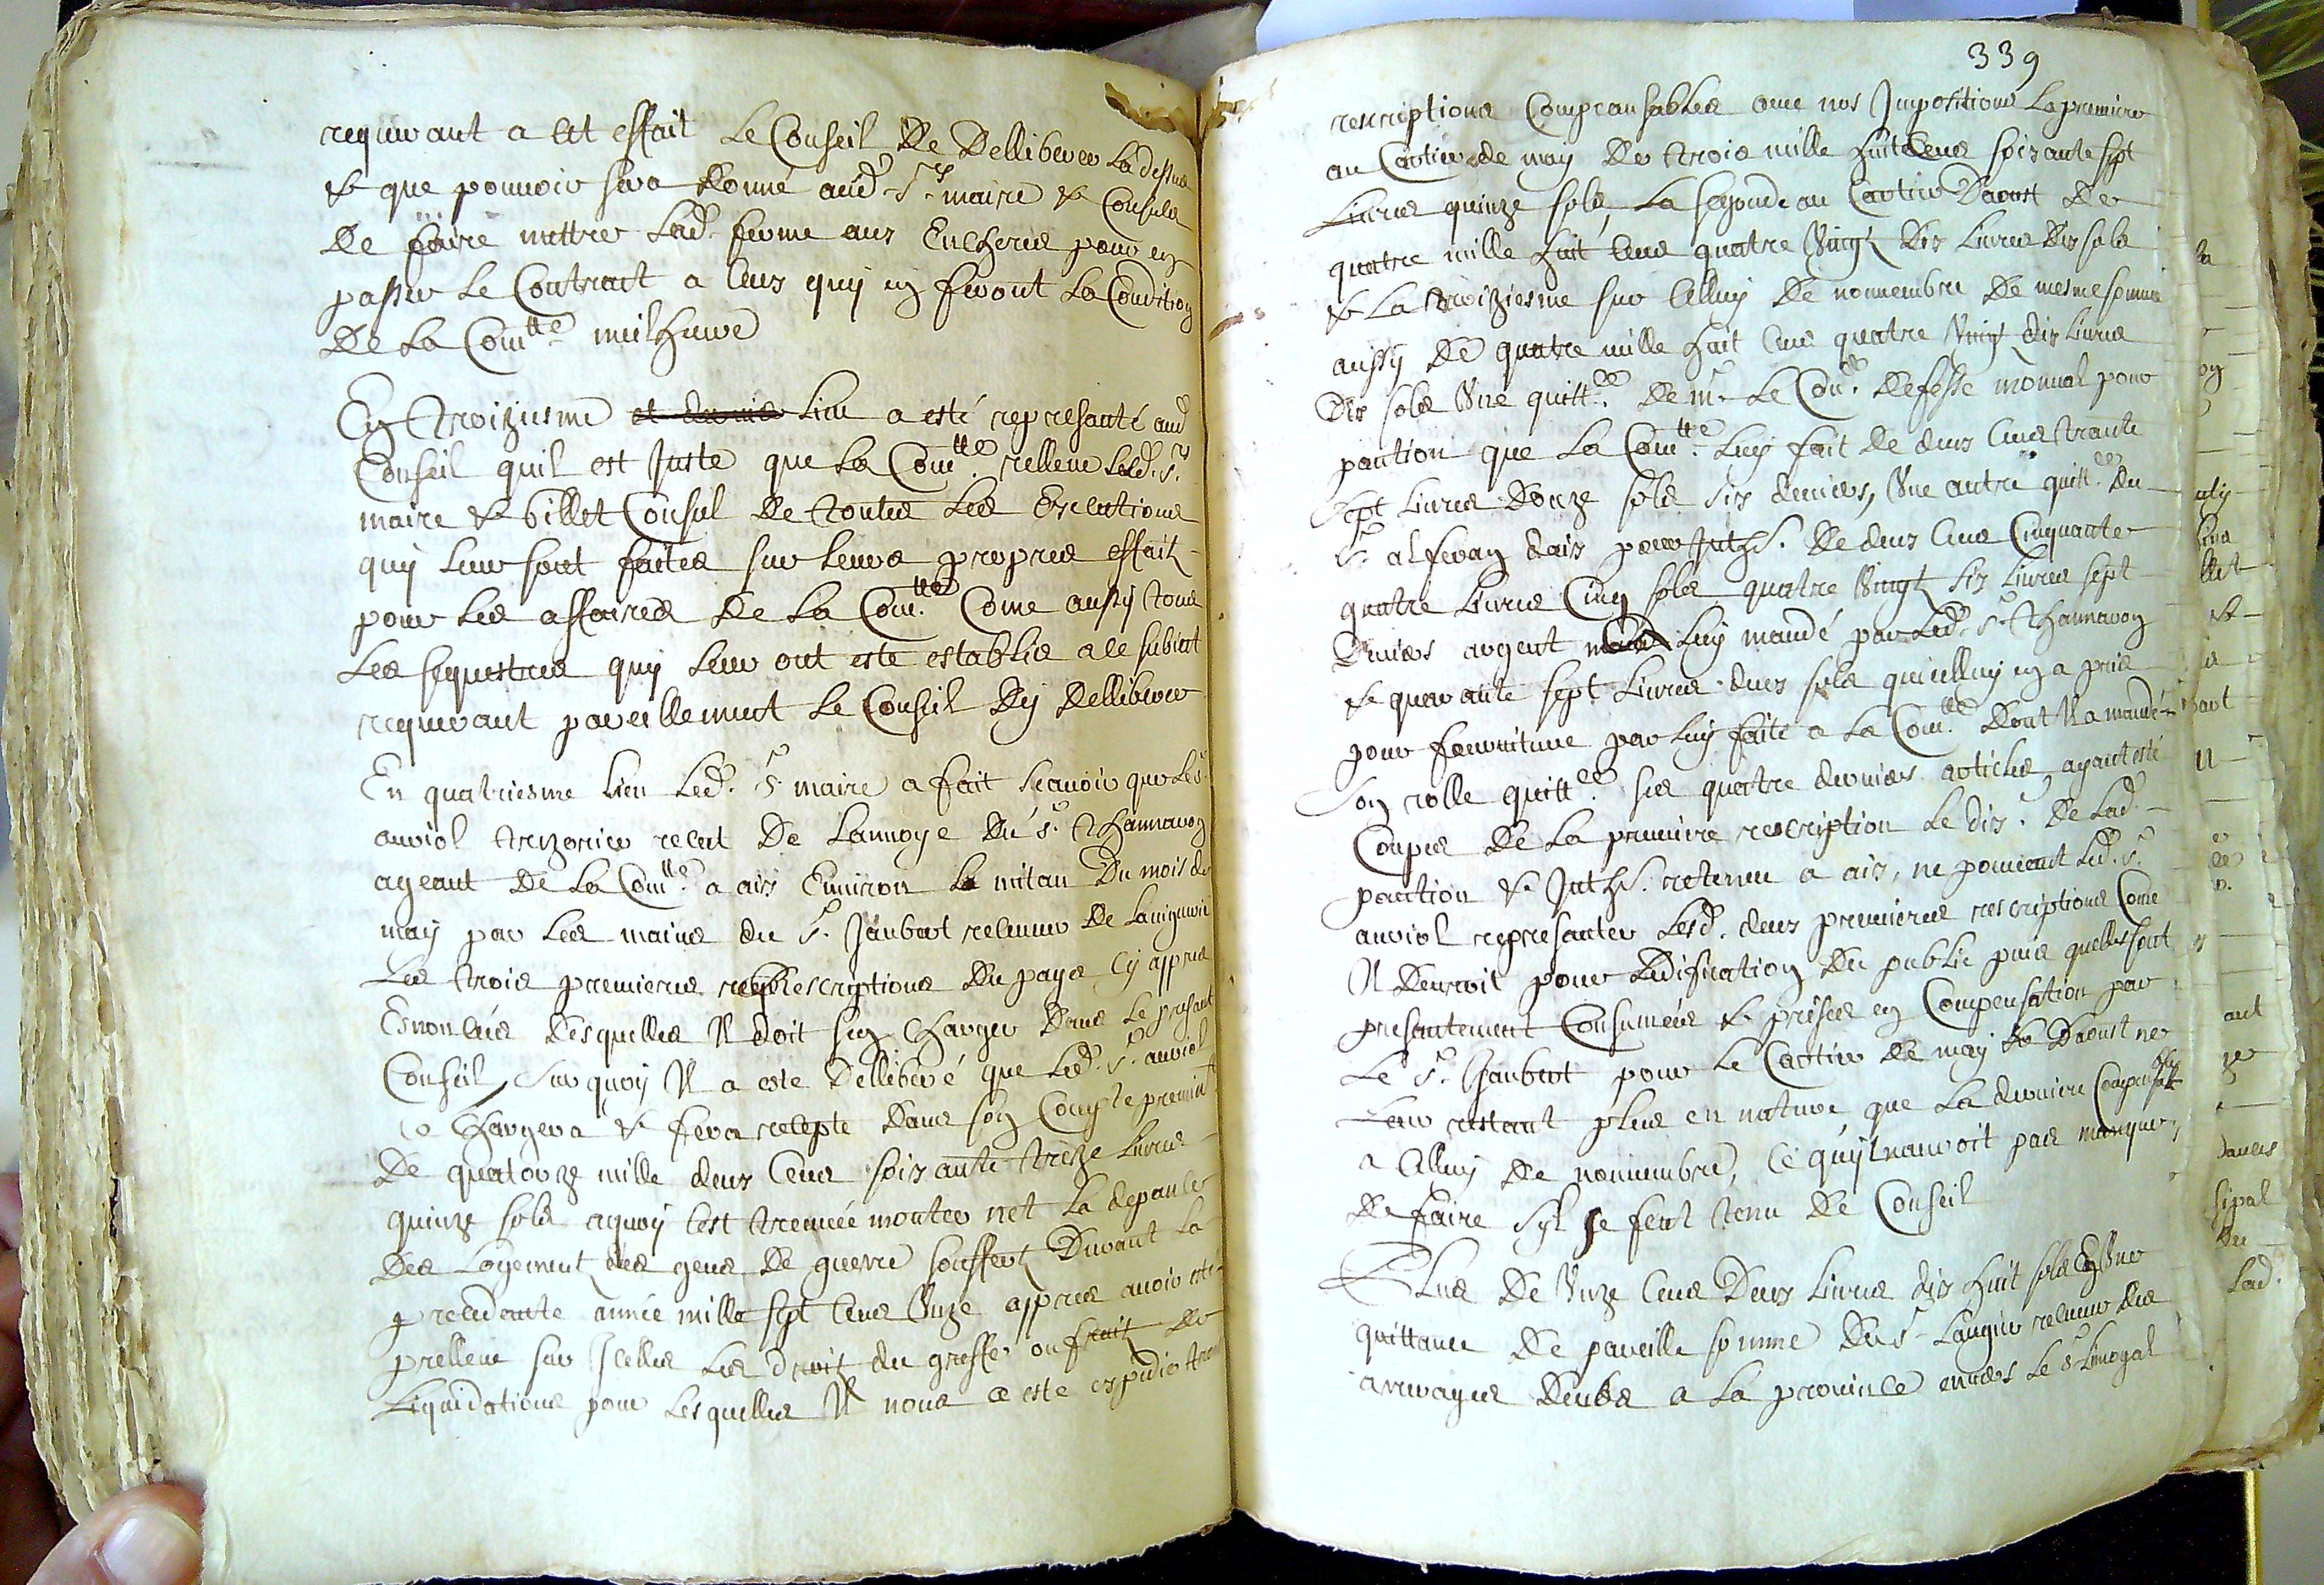 requerant a cet effait le Conseil de delliberer la dessus
& que pouvoir sera donné aud. srs maire & Consuls
de faire mettre lad. ferme aux Encheres pour en
passer le Contract a ceux quy en feront la Condition
de la Comtté meilheure
En troiziesme et dernier lieu a esté represanté aud
Conseil quil est Juste que la Comtté. relleve lesd. srs
maire & billet Consul de toutes les Executions
quy leur sont faites sur leurs propres effaitz
pour les affaires de la Comtté. Come aussy tous
les sequestres quy leur ont este establis a ce subiect
requerant pareillement le Conseil dy delliberer
En quatriesme lieu led. sr. maire a fait scavoir que le s.
auriol trezorier receut de lannoye du sr. Thannaron
ageant de la Comtté. a aix Environ le mitan du mois de
may par les mains du sr. Jaubert receveur de la viguerie
les trois premieres rescriptions du pays Cy appres
Enoncées desquelles Il doit sen Charger dans le presant
Conseil, sur quoy Il a este delliberé que led. sr. auriol
se Chargera & fera recepte dans son Compte premiert
de quatorze mille deux Cens soixante treize livres
quinze sols aquoy c'est treuvée monter net la depance
des logementz des gens de guerre souffertz durant la
precedente année mille sept Cens Unze appres avoir esté
prelleve sur Icelles les droit du greffe ou fraitz de
Liquidations pour lesquelles Il nous a este expedie trois
339
rescriptions Compransables avec nos Impositions la premiere
au Cartier de may de trois mille huit Cens soixante sept
livres quinze sols, la segonde au Cartier Daoust de
quatre mille huit Cens quatre Vingt dix livres dix sols
& la troiziesme sur Celluy de novembre de mesme somme
aussy de quatre mille huit Cens quatre Vingt dix livres
dix sols Une quittce. de mr. le Conr. defesse monual pour
pantion que la Comtté. luy fait de deux Cens trante
sept livres douze sols six deniers, Une autre quittce. du
sr. alferan daix pour Juthz. de deux Cens Cinquante
quatre livres Cinq sols quatre Vingt six livres sept
deniers argent luy mandé par led. sr. Thannaron
& quarante sept livres deux sols quicelluy en a pris
pour fourniture par luy faite a la Comtté. dont Il a mandé
son rolle quittcé. les quatre derniers articles ayant esté
Coupés de la premiere rescription le dix. de lad.
pantion & Juthz. retenue a aix, ne pouvant led. sr.
auriol represanter lesd. deux premieres rescriptions Come
Il devroit pour ledification du public puis quelles sont
presantement Consumées & prises en Compensation par
le sr. Jaubert pour le Cartier de may & Daoust ne
leur restant plus en nature que la derniere Compensable
a Celluy de novembre, Ce quyl nauroit pas manquer
de faire syl se feut tenu de Conseil
Plus de Unze Cens deux livres dix huit sols En Une
quittance de pareille somme du sr. Laugier receveur des
arrerages deubs a la province envers le sr. Limogal